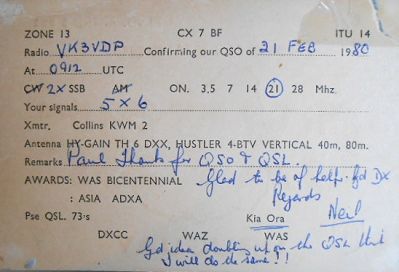 ZONE 13 CX 7 BF ITU 14
Radio VK3VDP Confirming our QSO of 21 FEB 1980
At 0912 UTC
CW 2X SSB AM ON. 3.5 7 14 21 28 Mhz.
Your signals 5 x 6
Xmtr. Collins KWM 2
Antenna HY-GAIN TH 6 DXX, HUSTLER 4-BTV VERTICAL 40m, 80m.
Remarks Paul Thanks for QSO & QSL.
AWARDS: WAS BICENTENNIAL Glad to be of help. Gd DX
: ASIA ADXA Regards
Pse QSL. 73's Kia Ora Neil
DXCC WAZ WAS
Gd idea doubling up on the QSL think
I will do the same!!